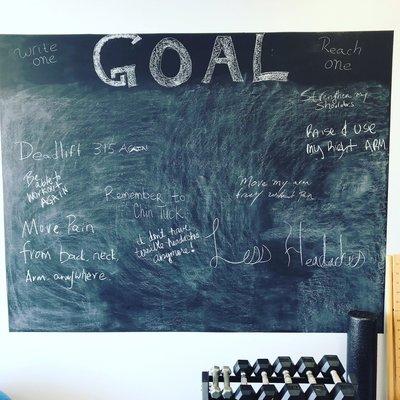 Write
one
GOAL
Reach
one
Strengthen my
Shoulders
Raise & Use
my Right ARM
Deadlift 315 Again
Be
able to
workout
AGAIN
Remember to
Chin Tuck.
Move my arm
Move Pain
from back, neck,
Arm. anywhere.
I don't have
terrible headaches
anymore!
Less Headaches